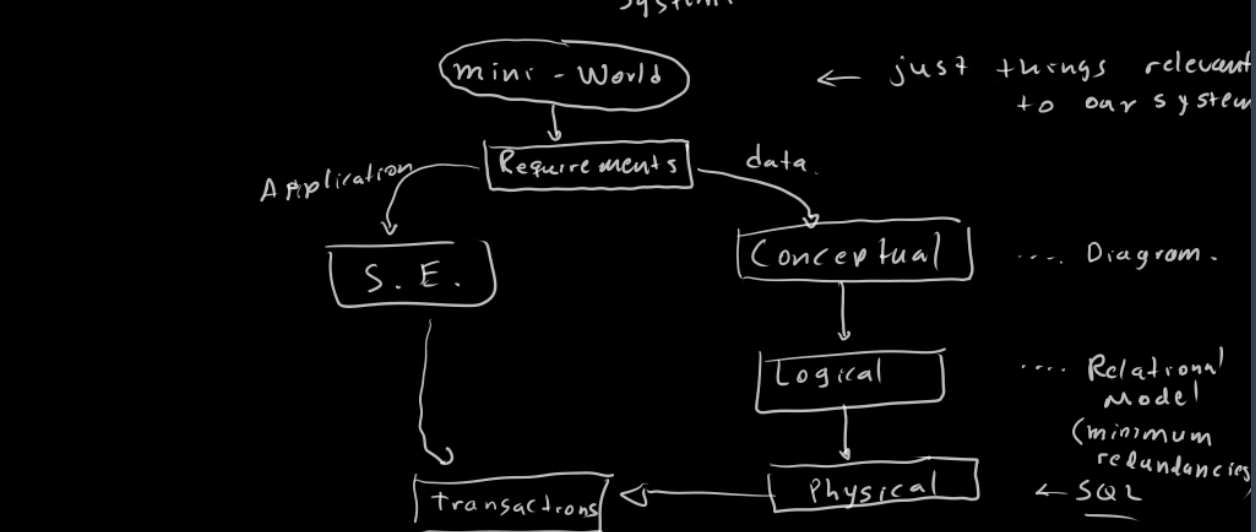 System.
mini - World
← just things relevant
to our system
Requirements
Application
data.
S. E.
Conceptual
.... Diagram.
Logical
.... Relational
Model
(minimum
redundancies)
Physical
← SQL
Transactions